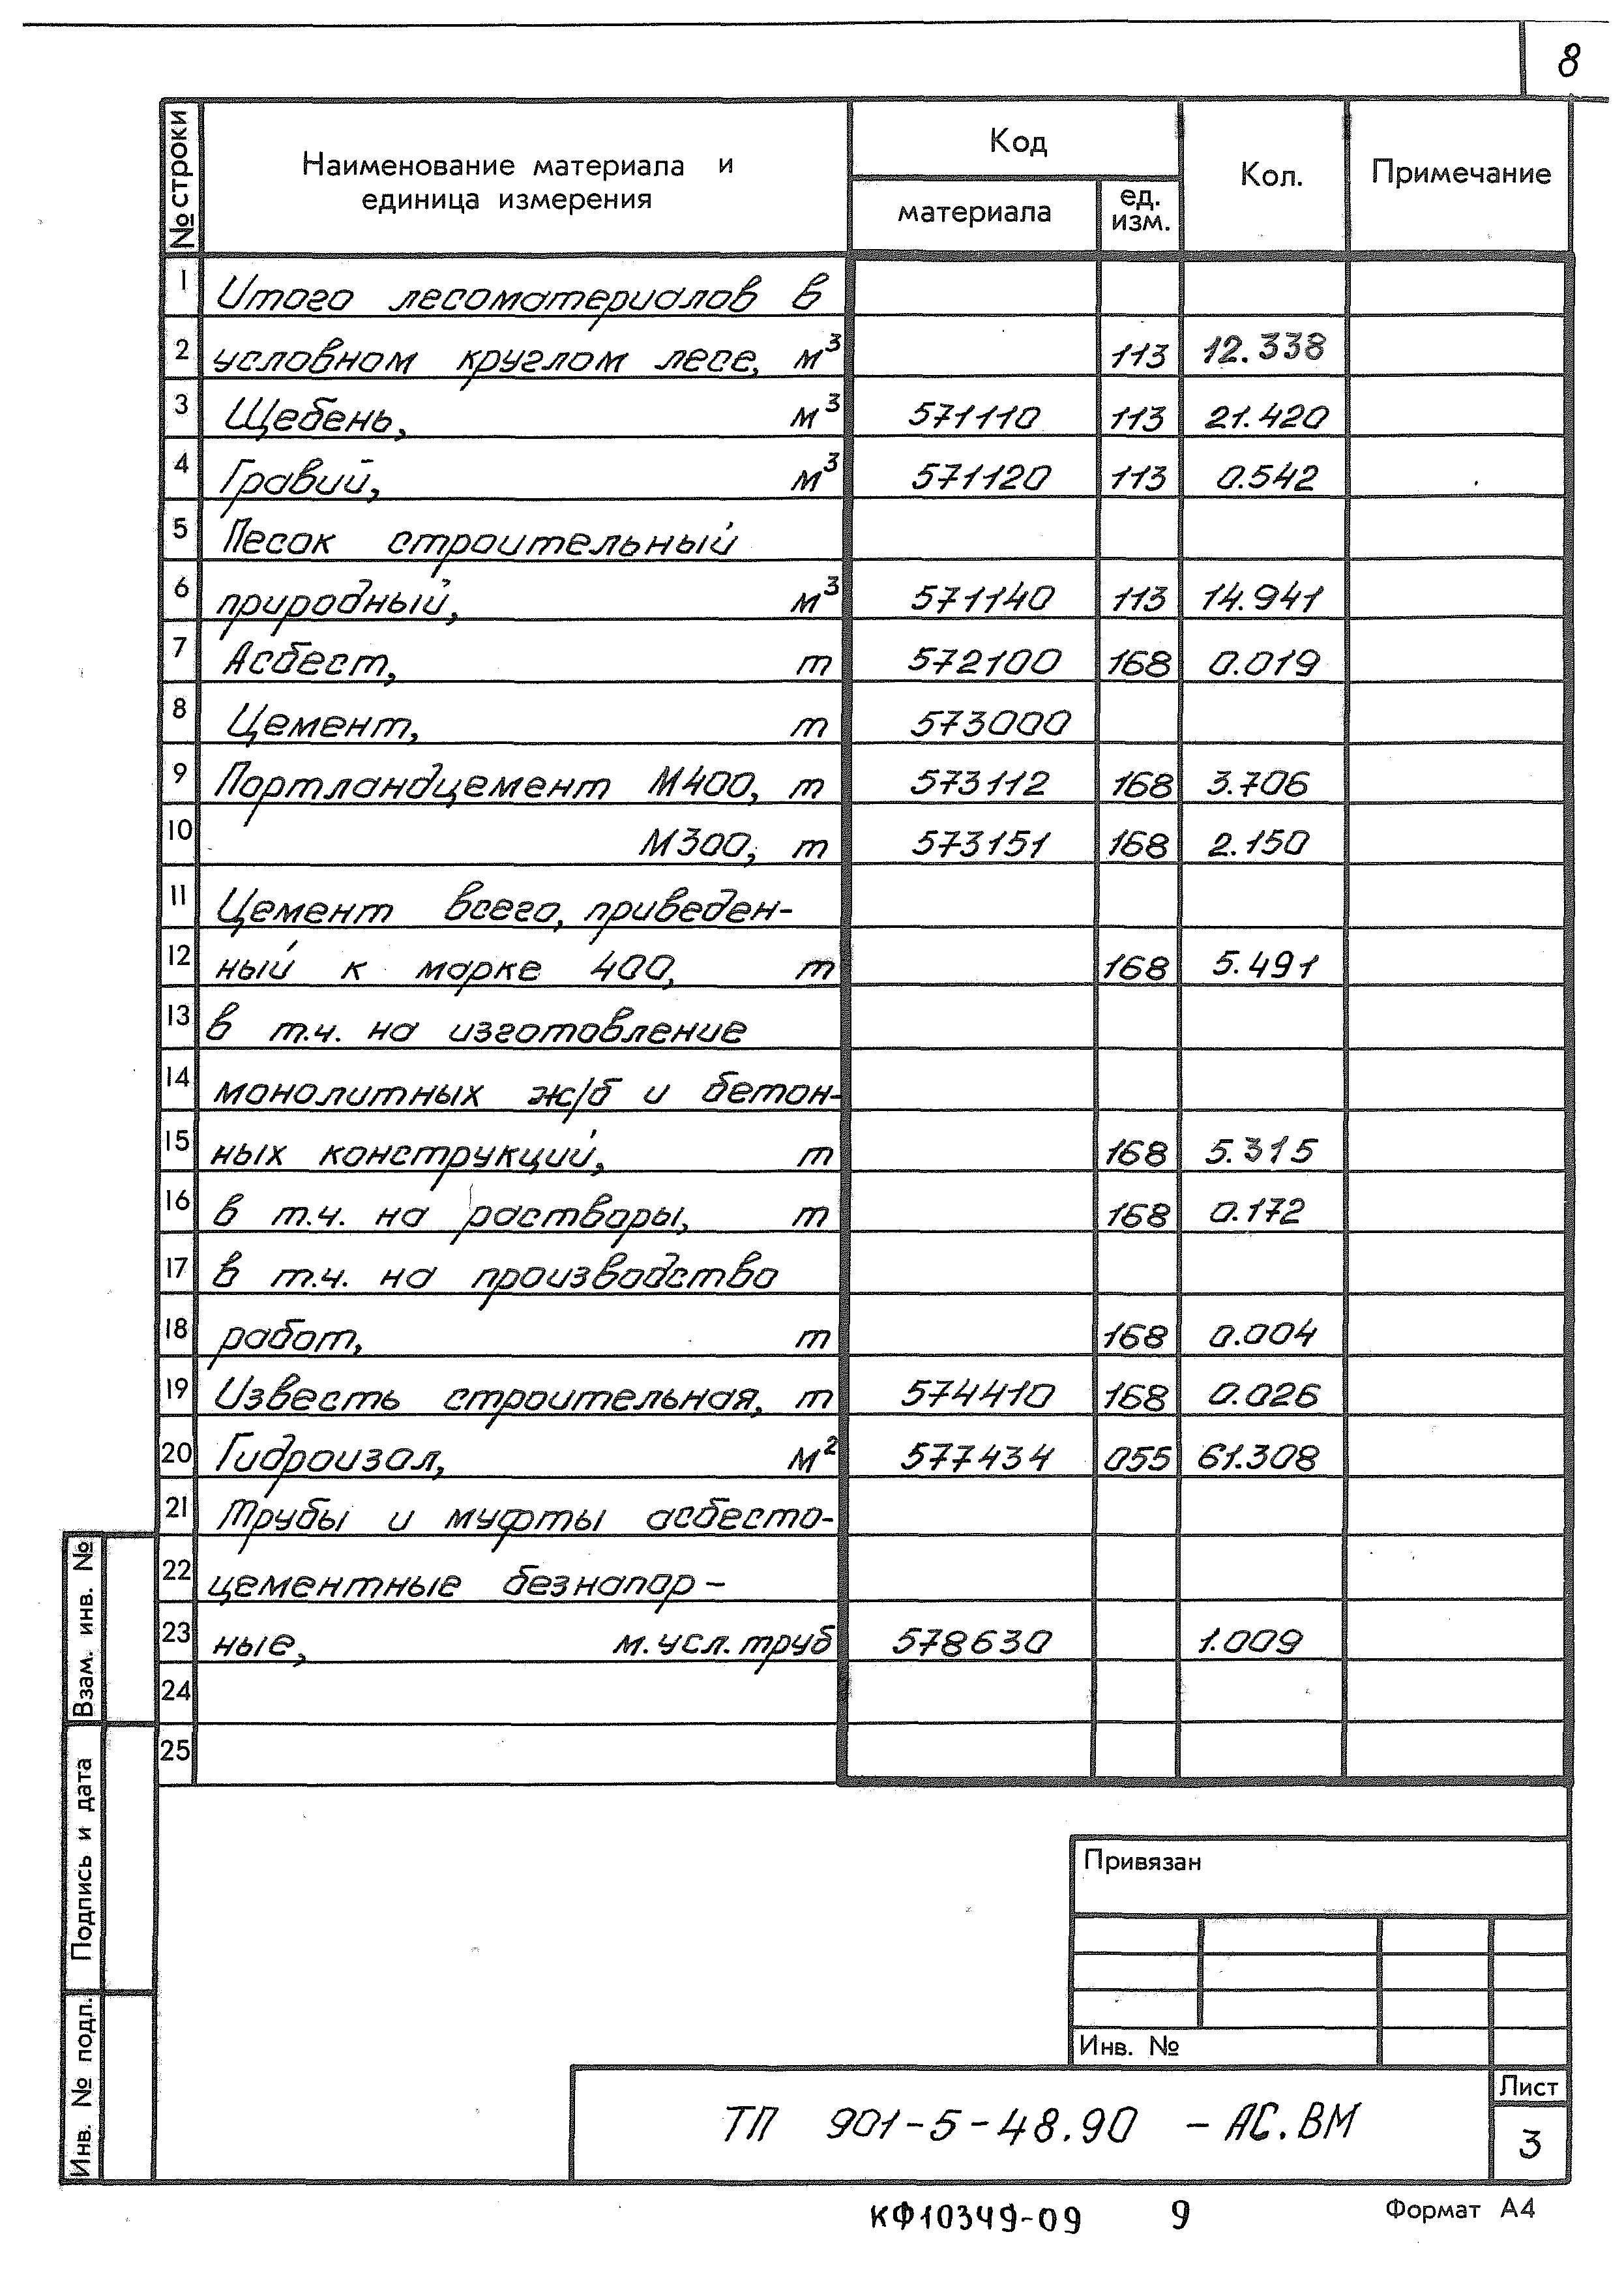 8
№ строки
Наименование материала и
единица измерения
Код
материала
ед.
изм.
Кол.
Примечание
1 Итого лесоматериалов в
2 условном круглом лесе, м³ 113 12.338
3 Щебень, м³ 571110 113 21.420
4 Гравий, м³ 571120 113 0.542
5 Песок строительный
6 природный, м³ 571140 113 14.941
7 Асбест, т 572100 168 0.019
8 Цемент, т 573000
9 Портландцемент М400, т 573112 168 3.706
10 М300, т 573151 168 2.150
11 Цемент всего, приведен-
12 ный к марке 400, т 168 5.491
13 в т.ч. на изготовление
14 монолитных ж/б и бетон-
15 ных конструкций, т 168 5.315
16 в т.ч. на растворы, т 168 0.172
17 в т.ч. на производство
18 работ, т 168 0.004
19 Известь строительная, т 574410 168 0.026
20 Гидроизол, м² 577434 055 61.308
21 Трубы и муфты асбесто-
22 цементные безнапор-
23 ные, м.усл.труб 578630 1.009
24
25
Взам. инв. №
Подпись и дата
Инв. № подл.
Привязан
Инв. №
ТП 901-5-48.90 - АС.ВМ
Лист
3
КФ10349-09 9
Формат А4